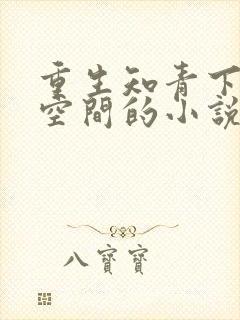 重生知青下
空間的小説
八寶寶